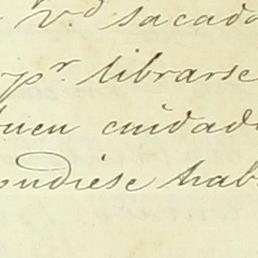 V.d sacado
p.r librarse
buen cuidado
pudiese hab